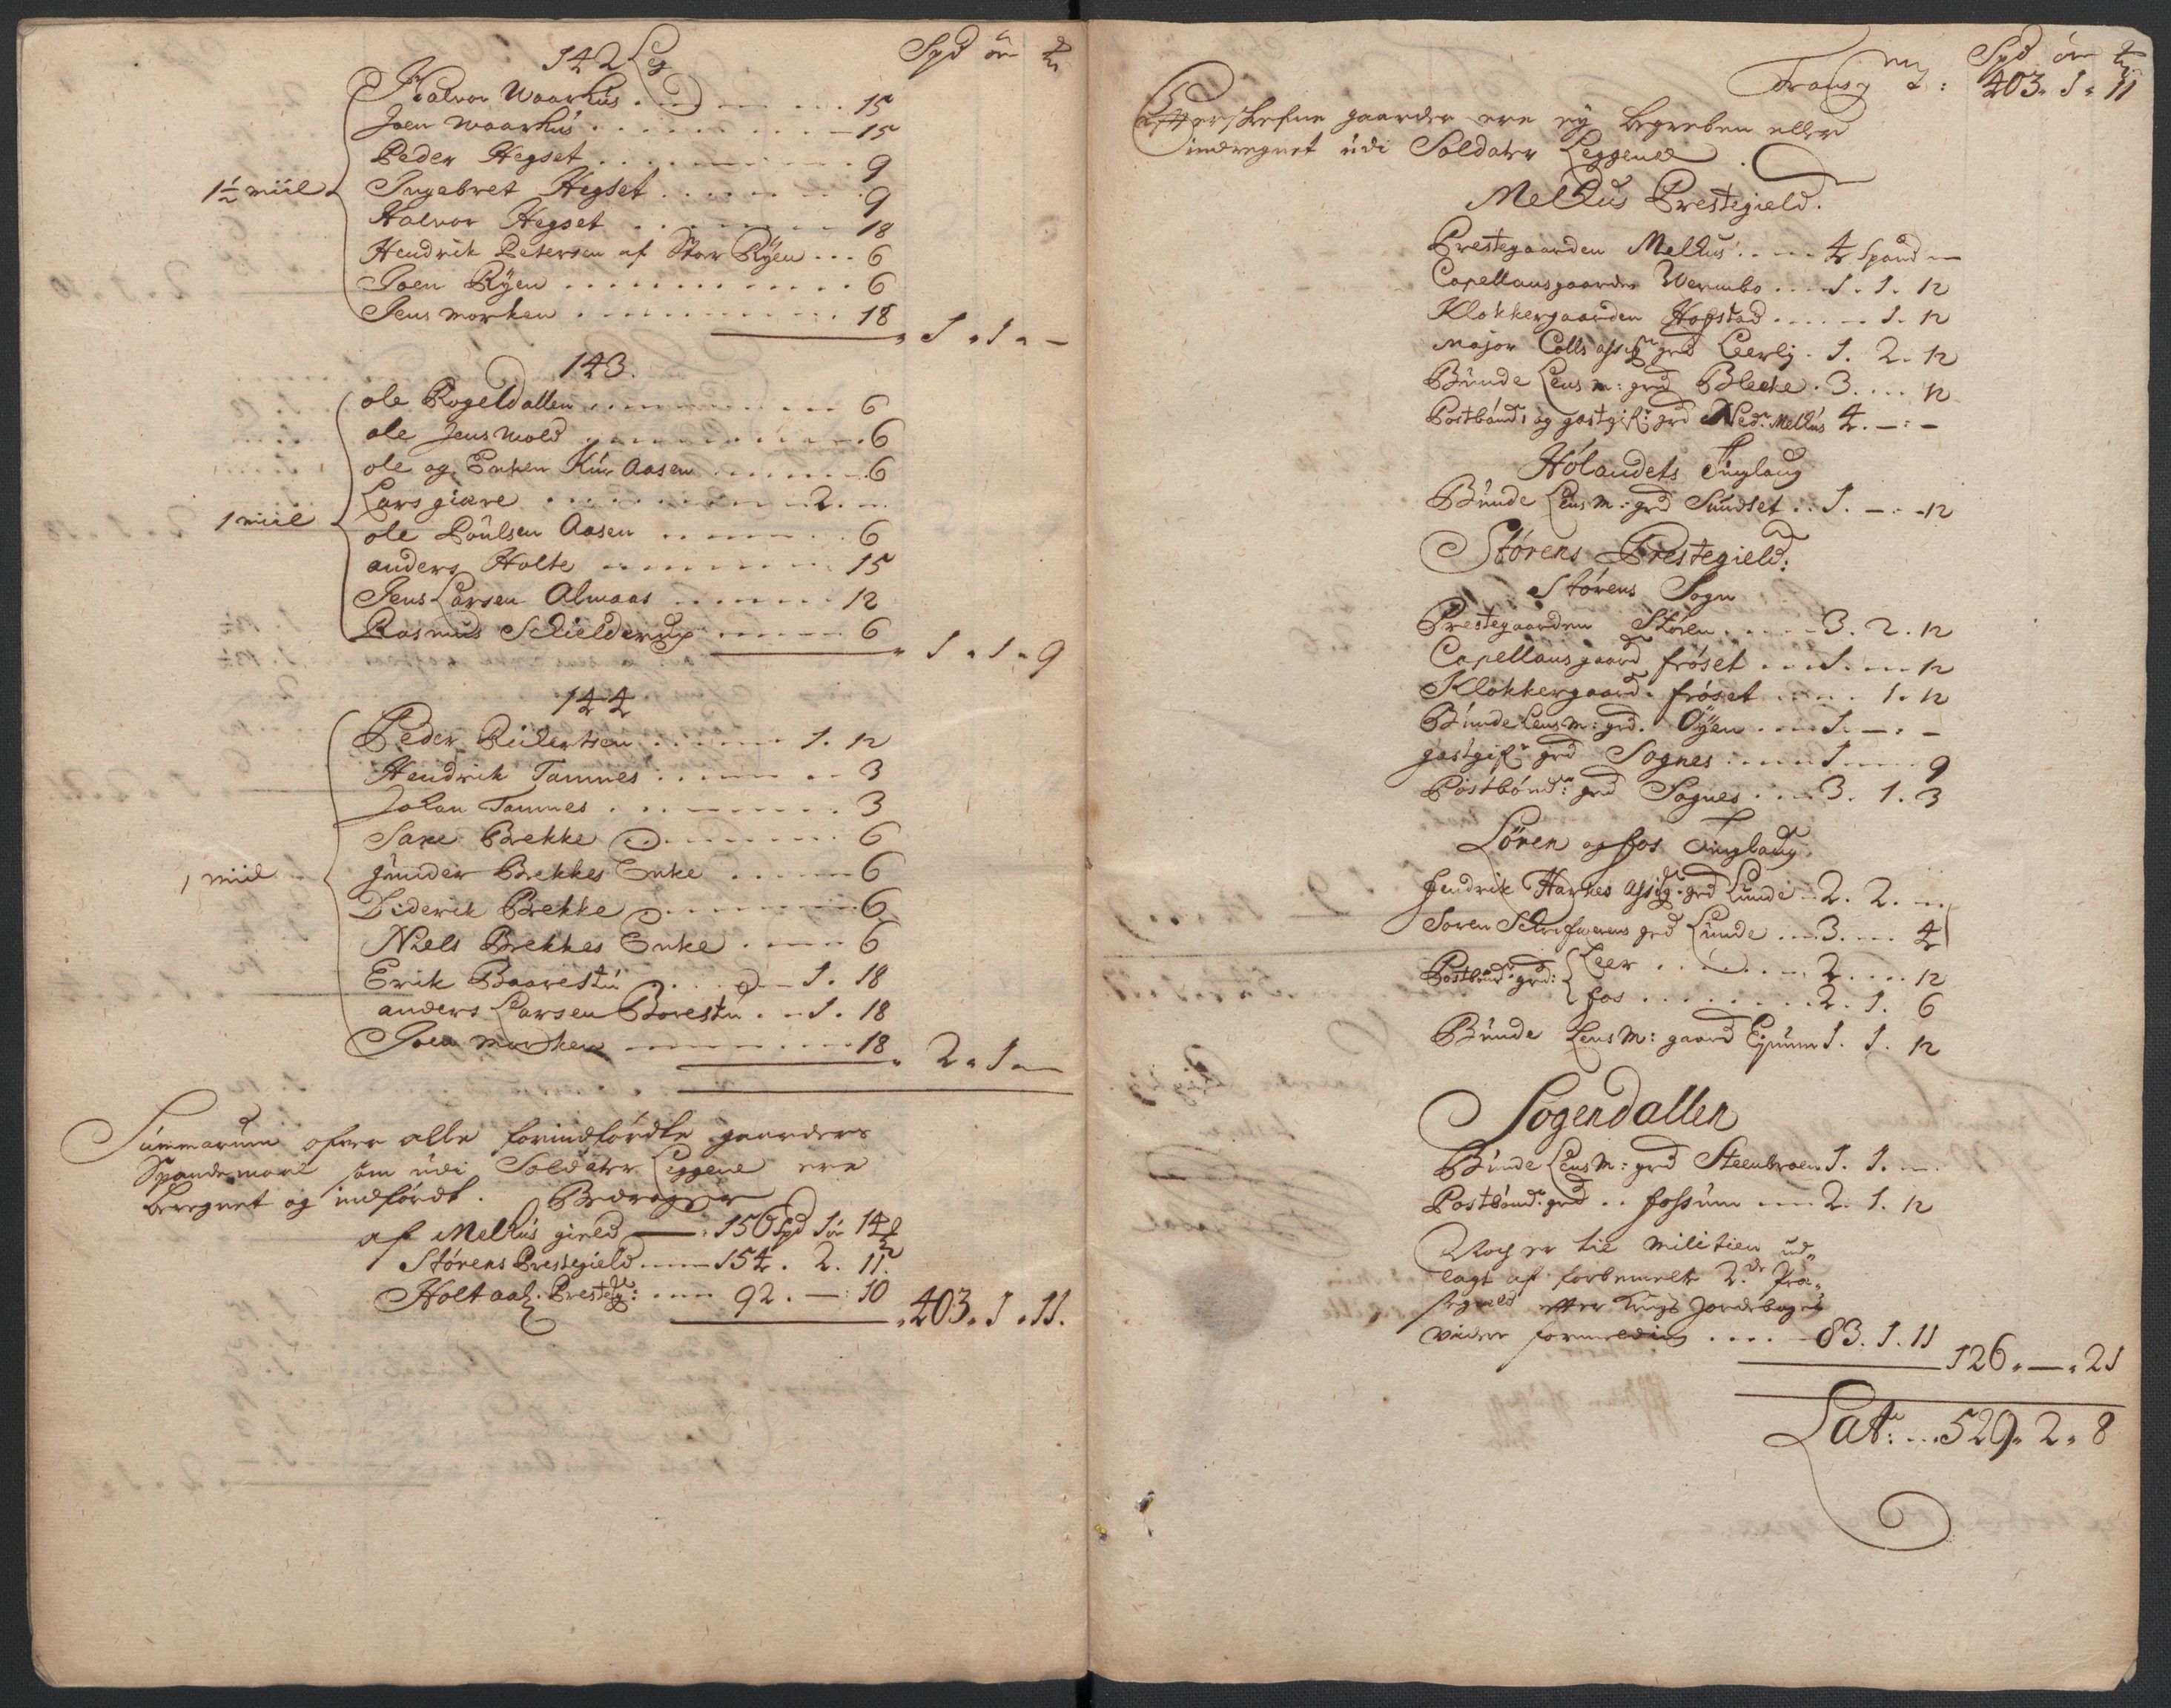 142 Leg
Spd ör
Halvor Waarhus 15
Joen Waarhus 15
Peder Hegset 9
1½ miil
Ingebret Hegset 9
Halvor Hegset 18
Hendrik Petersen af Stor Ryen 6
Joen Ryen 6
Jens morken 18
1 . 1 . –
143.
ole Rogeldallen 6
ole Jens wold 6
ole og Enken Kur Aasen 6
Lars giære 2. –
1 miil
ole Poulsen Aasen 6
anders Holte 15
Jens Larsen Almaas 12
Rasmus Schielderup 6
1 . 1 . 9
144
Peder 1. 12
Hendrik Tamnes 3
Johan Tamnes 3
Saxe Brekke 6
1 miil
gunder Brekkes Enke 6
Diderik Brekke 6
Niels Brekkes Enke 6
Erik Baarestu 1. 18
anders Larsen Borestu 1. 18
Joen morken 18
2 . 1 . –
Summarum ofver alle forindførdte gaarders
Spandemant som udi Soldater Leggene ere
beregnet og indførdt. Bedrager
af Melhus gield 156 Spd 1 ör 14
Størens Prestegield 154. 2. 11.
Holtaal. Presteg: 92. – : 10
403. 1. 11.
Spd ör
Transp : 403. 1. 11
Effterskrefne gaarder ere ey begreben eller
indregnet udi Soldater Leggene
Melhus Prestegield.
Prestegaarden Melhus 4 Spand –
Capellansgaarden Wermbo 1. 1. 12
Klokkergaarden Hofstad 1. 12
Major Colls assig grd Leerli 1. 2. 12
Bunde Lens m: grd Blecke 3. 12
Postbond: og gastgif: grd Ned: Melhus 4. – : –
Hólandets Tinglaug
Bunde Lens M: grd Sundset 1. – : 12
Størens Prestegield:
Störens Sogn
Prestegaarden Stören 3. 2. 12
Capellansgaard fröset 1. 12
Klokkergaard fröset 1. 12
Bunde Lens m: grd. Øyen 1. – . –
gastgif: grd Sognes 1. 9
Postbónd: grd Sognes 3. 1. 3
Lören og fos Tinglaug
Hendrik Harkes assig. grd Lunde 2. 2. –
Soren Schrifwerens grd Lunde 3. 4
Postbond: grd: Leer 2. 12
fos 2. 1. 6
Bunde Lens M: gaard 1. 1. 12
Sogendallen
Bunde Lens M: grd Steenbroen 1. 1. –
Postbond: grd fossum 2. 1. 12
Noch er til militien ud-
lagt af forbemelte 2de Præ-
stegield efter Leigs Jordebogers
videre formelding 83. 1. 11
126. – . 21
Lat: 529. 2. 8